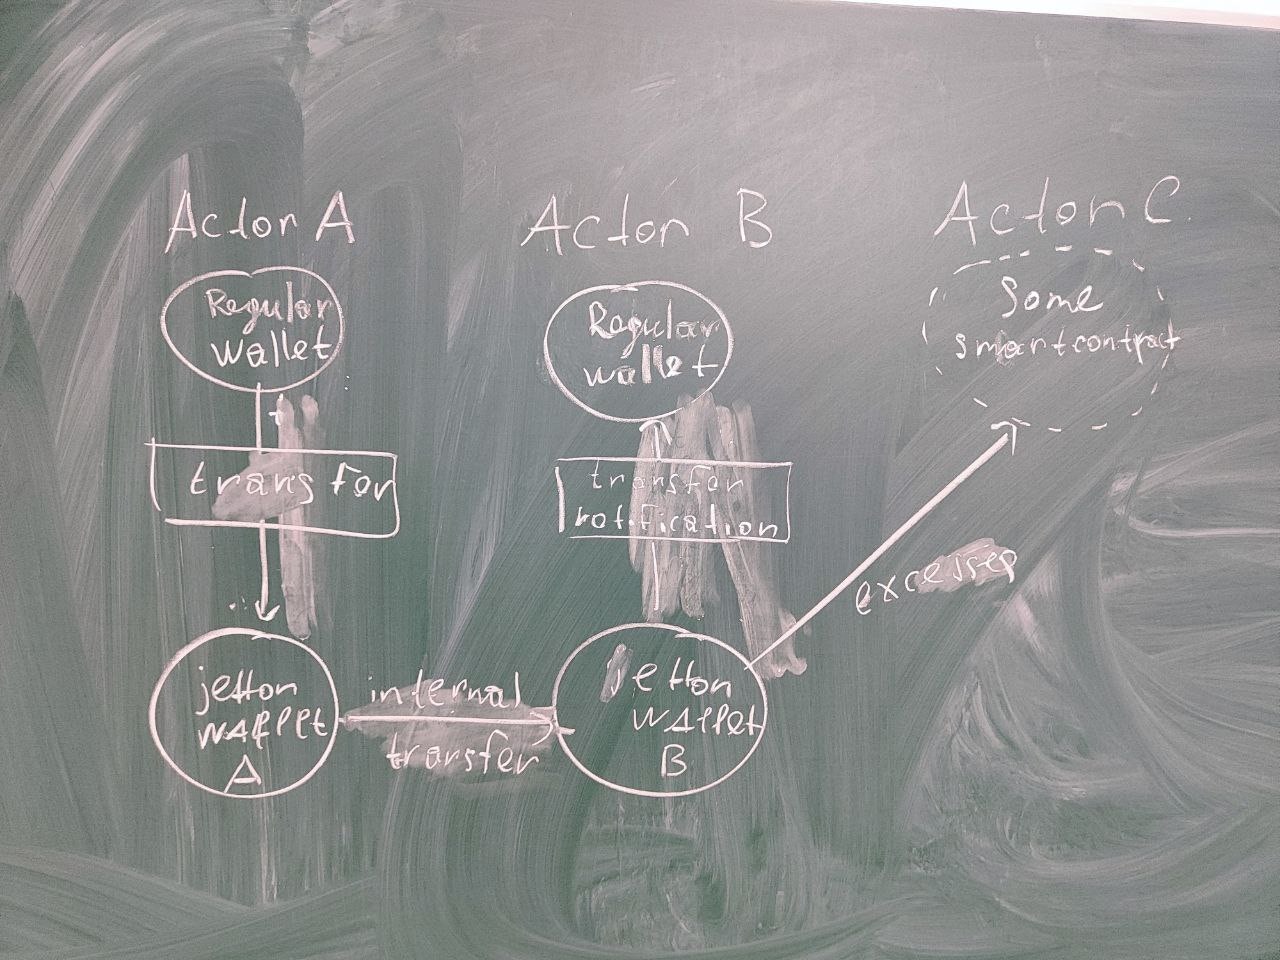 Actor A
Actor B
Actor C
Regular
wallet
Regular
wallet
Some
smartcontract
transfer
transfer
notification
excesses
jetton
wallet
A
internal
transfer
jetton
wallet
B